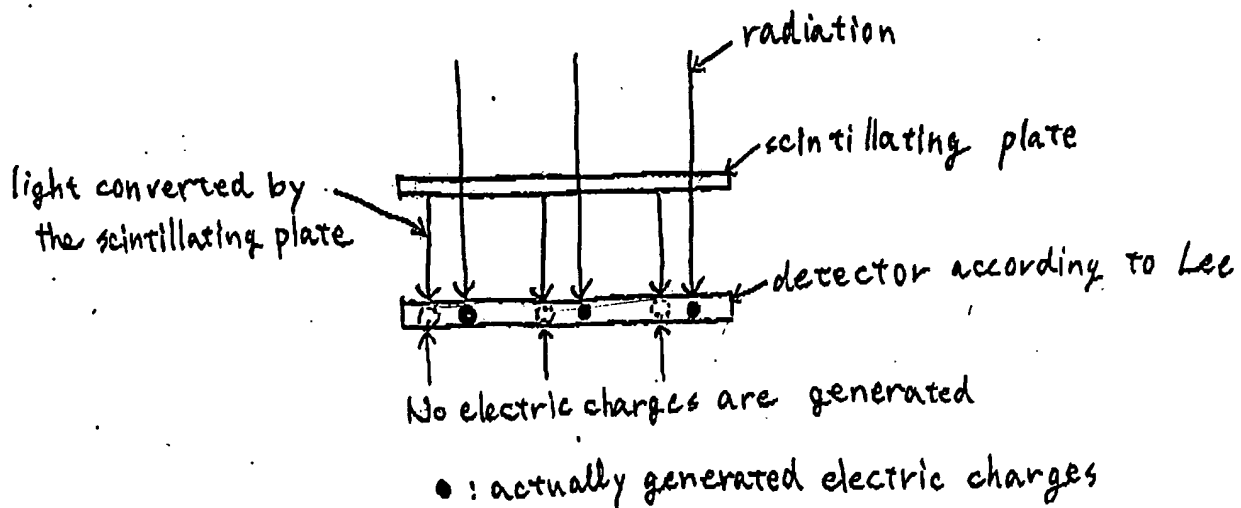 radiation
scintillating plate
light converted by
the scintillating plate
detector according to Lee
No electric charges are generated
● : actually generated electric charges